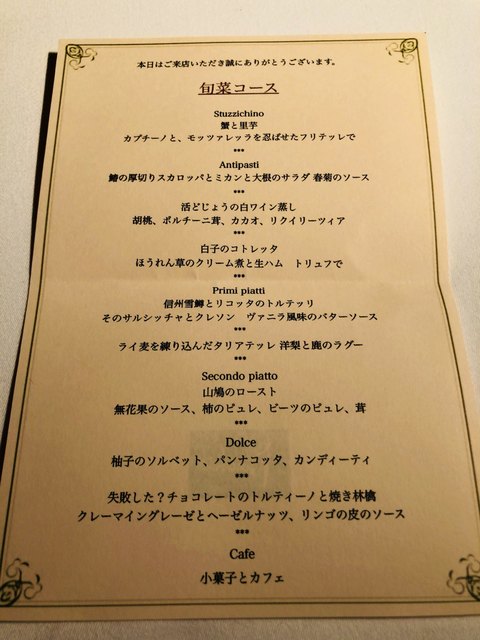 本日はご来店いただき誠にありがとうございます。
旬菜コース
Stuzzichino
蟹と里芋
カプチーノと、モッツァレッラを忍ばせたフリテッレで
***
Antipasti
鰆の厚切りスカロッパとミカンと大根のサラダ 春菊のソース
***
活どじょうの白ワイン蒸し
胡桃、ポルチーニ茸、カカオ、リクイリーツィア
***
白子のコトレッタ
ほうれん草のクリーム煮と生ハム トリュフで
***
Primi piatti
信州雪鱒とリコッタのトルテッリ
そのサルシッチャとクレソン ヴァニラ風味のバターソース
***
ライ麦を練り込んだタリアテッレ 洋梨と鹿のラグー
***
Secondo piatto
山鳩のロースト
無花果のソース、柿のピュレ、ビーツのピュレ、茸
***
Dolce
柚子のソルベット、パンナコッタ、カンディーティ
***
失敗した？チョコレートのトルティーノと焼き林檎
クレーマイングレーゼとヘーゼルナッツ、リンゴの皮のソース
***
Cafe
小菓子とカフェ